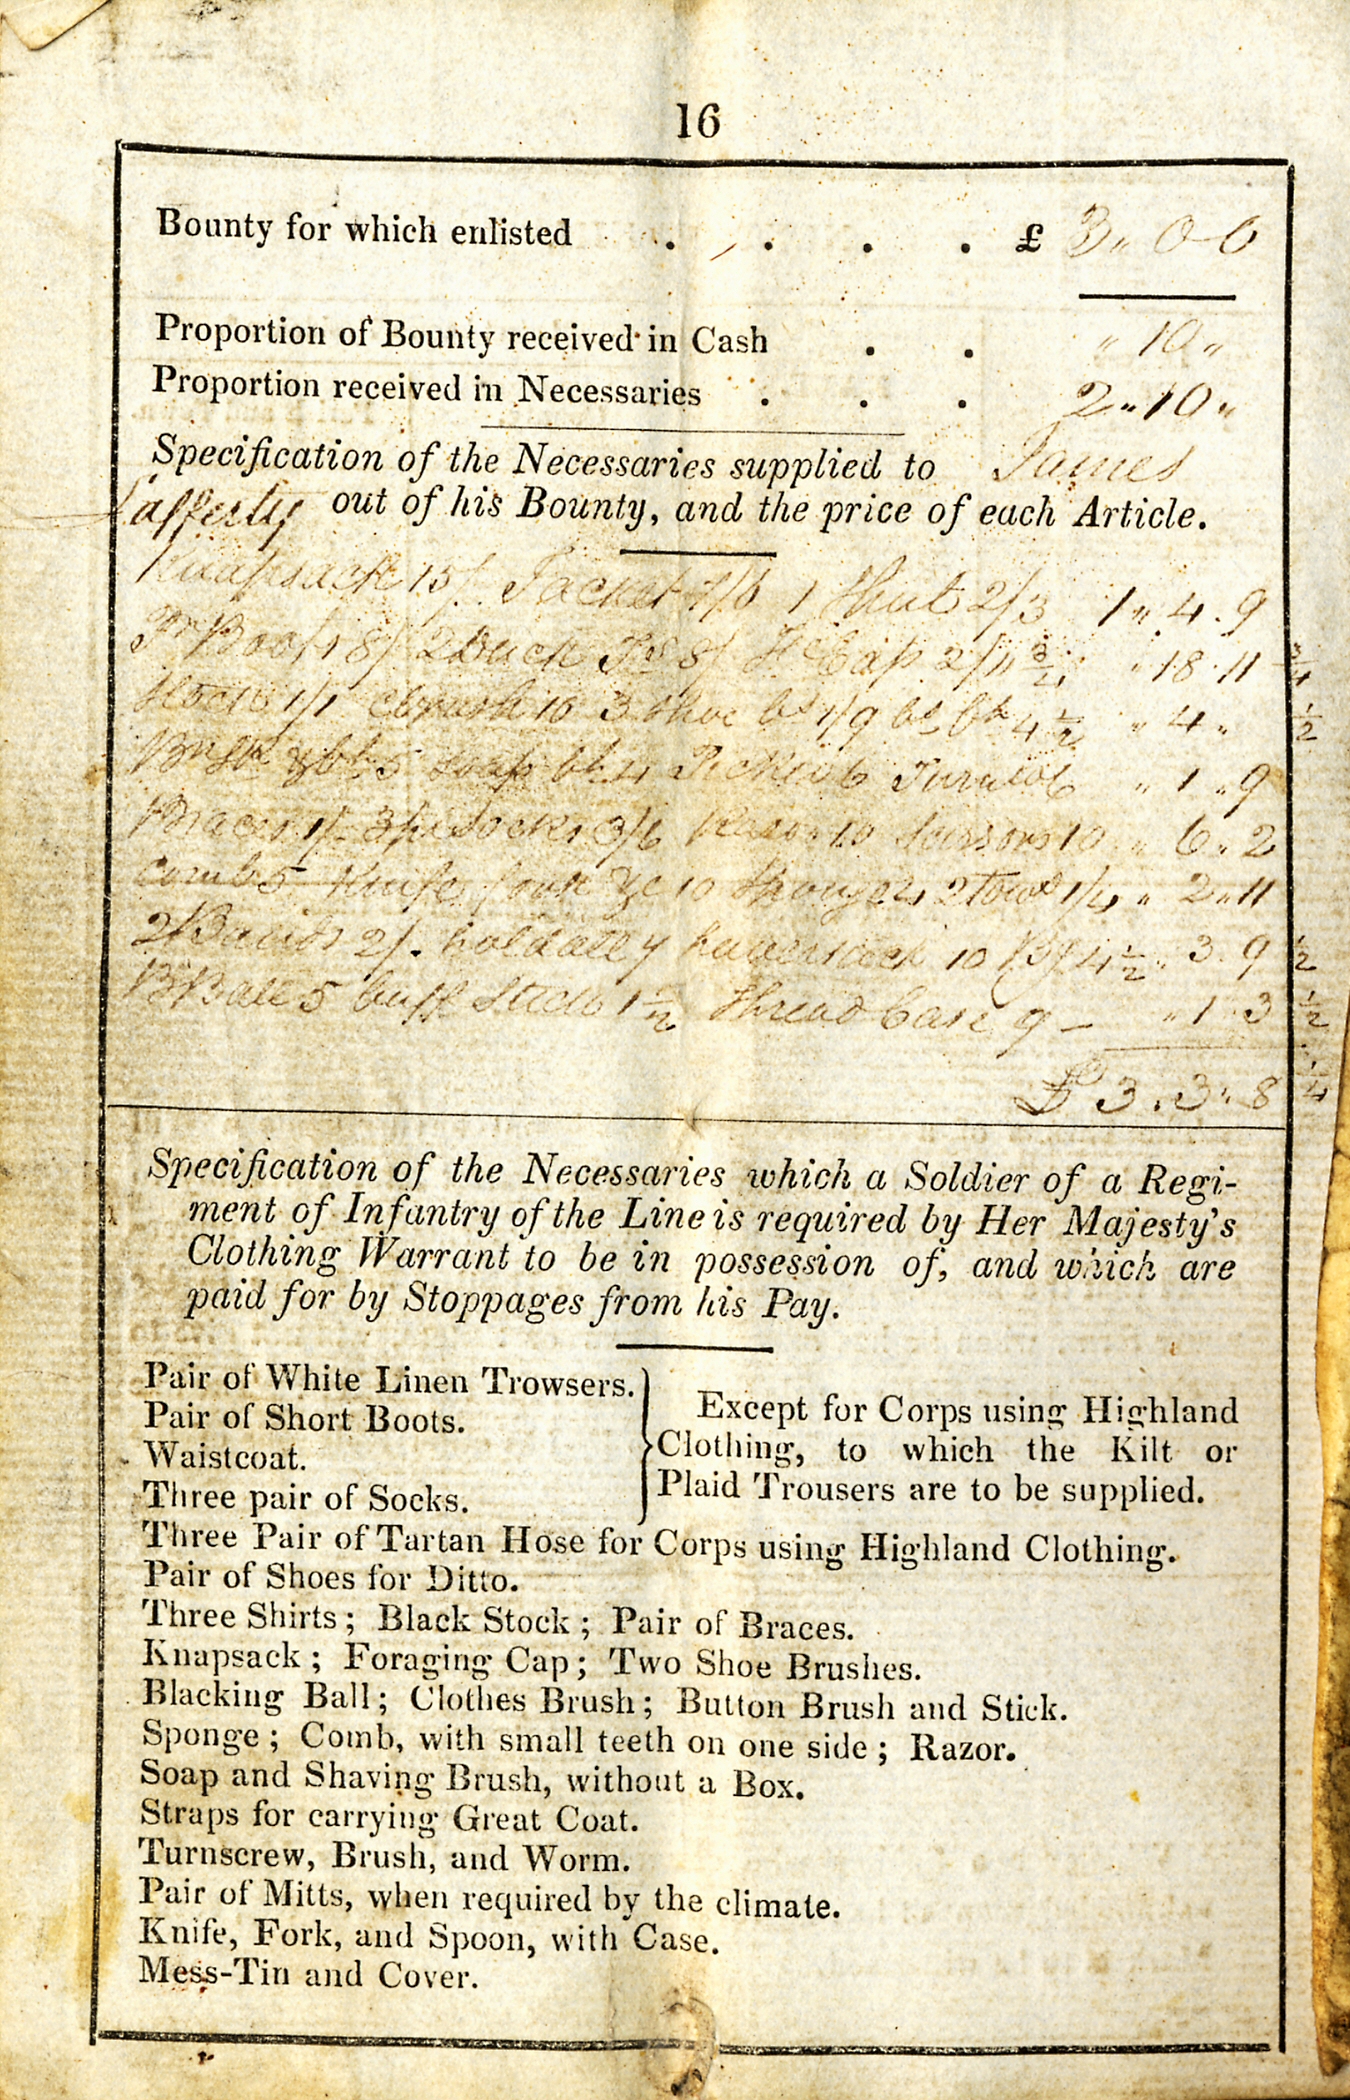 16
Bounty for which enlisted . . . . £ 3 " 0 0
Proportion of Bounty received in Cash . . " 10 "
Proportion received in Necessaries . . . 2 " 10 "
Specification of the Necessaries supplied to James
Lafferty out of his Bounty, and the price of each Article.
Knapsack 13/ Jacket 7/6 1 Shirt 2/3 1 " 4 . 9
Pr Boots 8/ 2 Duck Trs 8/ Fe Cap 2/11 3/4 " 18 . 11 3/4
Stock 1/1 brush 10 3 Shoe bs 1/9 4 1/2 " 4 " 1/2
5 soap 4 6 6 " 1 " 9
Braces 1/ 3 pr Socks 3/6 Razor 10 Scissors 10 " 6 " 2
comb 5 Knife fork &c 10 Sponge 4 2 Tow 1/4 " 2 " 11
2 2/. holdall 7 haversack 10 4 1/2 " 3 . 9 1/2
B Ball 5 buff Stick 1 1/2 Thread Case 9 — " 1 . 3 1/2
£ 3 . 3 " 8 1/4
Specification of the Necessaries which a Soldier of a Regi-
ment of Infantry of the Line is required by Her Majesty's
Clothing Warrant to be in possession of, and which are
paid for by Stoppages from his Pay.
Pair of White Linen Trowsers.
Pair of Short Boots.
Waistcoat.
Three pair of Socks.
Except for Corps using Highland
Clothing, to which the Kilt or
Plaid Trousers are to be supplied.
Three Pair of Tartan Hose for Corps using Highland Clothing.
Pair of Shoes for Ditto.
Three Shirts ; Black Stock ; Pair of Braces.
Knapsack ; Foraging Cap ; Two Shoe Brushes.
Blacking Ball ; Clothes Brush ; Button Brush and Stick.
Sponge ; Comb, with small teeth on one side ; Razor.
Soap and Shaving Brush, without a Box.
Straps for carrying Great Coat.
Turnscrew, Brush, and Worm.
Pair of Mitts, when required by the climate.
Knife, Fork, and Spoon, with Case.
Mess-Tin and Cover.